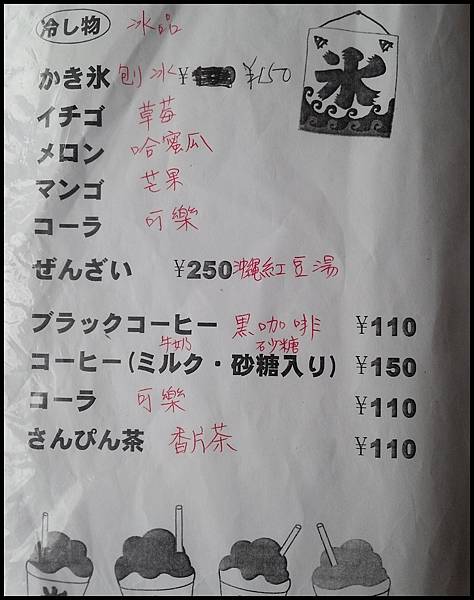 冷し物 冰品
かき氷 刨冰 ¥ ¥150
氷
イチゴ 草莓
メロン 哈蜜瓜
マンゴ 芒果
コーラ 可樂
ぜんざい ¥250 沖繩紅豆湯
ブラックコーヒー 黒咖啡 ¥110
牛奶 砂糖
コーヒー(ミルク・砂糖入り) ¥150
コーラ 可樂 ¥110
さんぴん茶 香片茶 ¥110